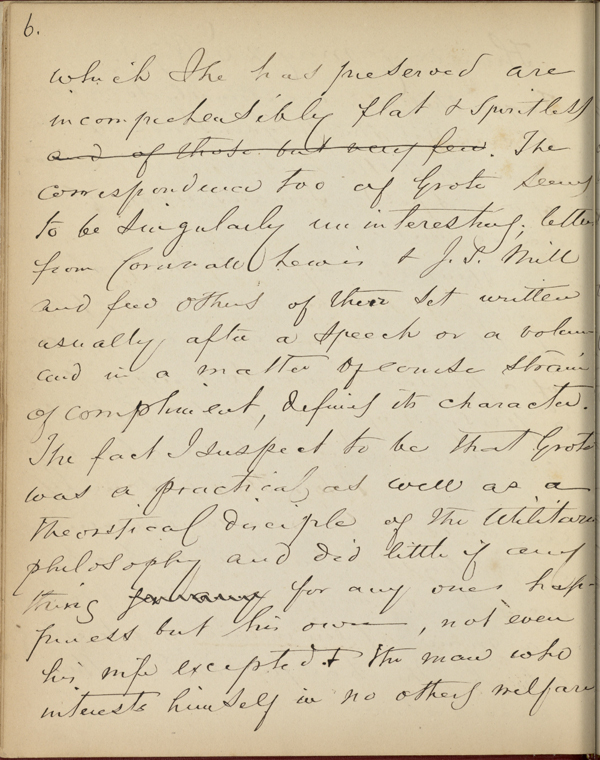 6.
which She has preserved are
incomprehensibly flat & Spiritless
and of those but very few. The
correspondence too of Grote seems
to be singularly uninteresting; letters
from Cornwall Lewis & J. S. Mill
and few others of their set written
usually after a speech or a volume
and in a matter of course strain
of compliment, defining its character.
The fact I suspect to be that Grote
was a practical, as well as a
theoretical disciple of the Utilitarian
philosophy and did little if any
thing for any ones hap-
piness but his own, not even
his wife excepted & the man who
interests himself in no others welfare